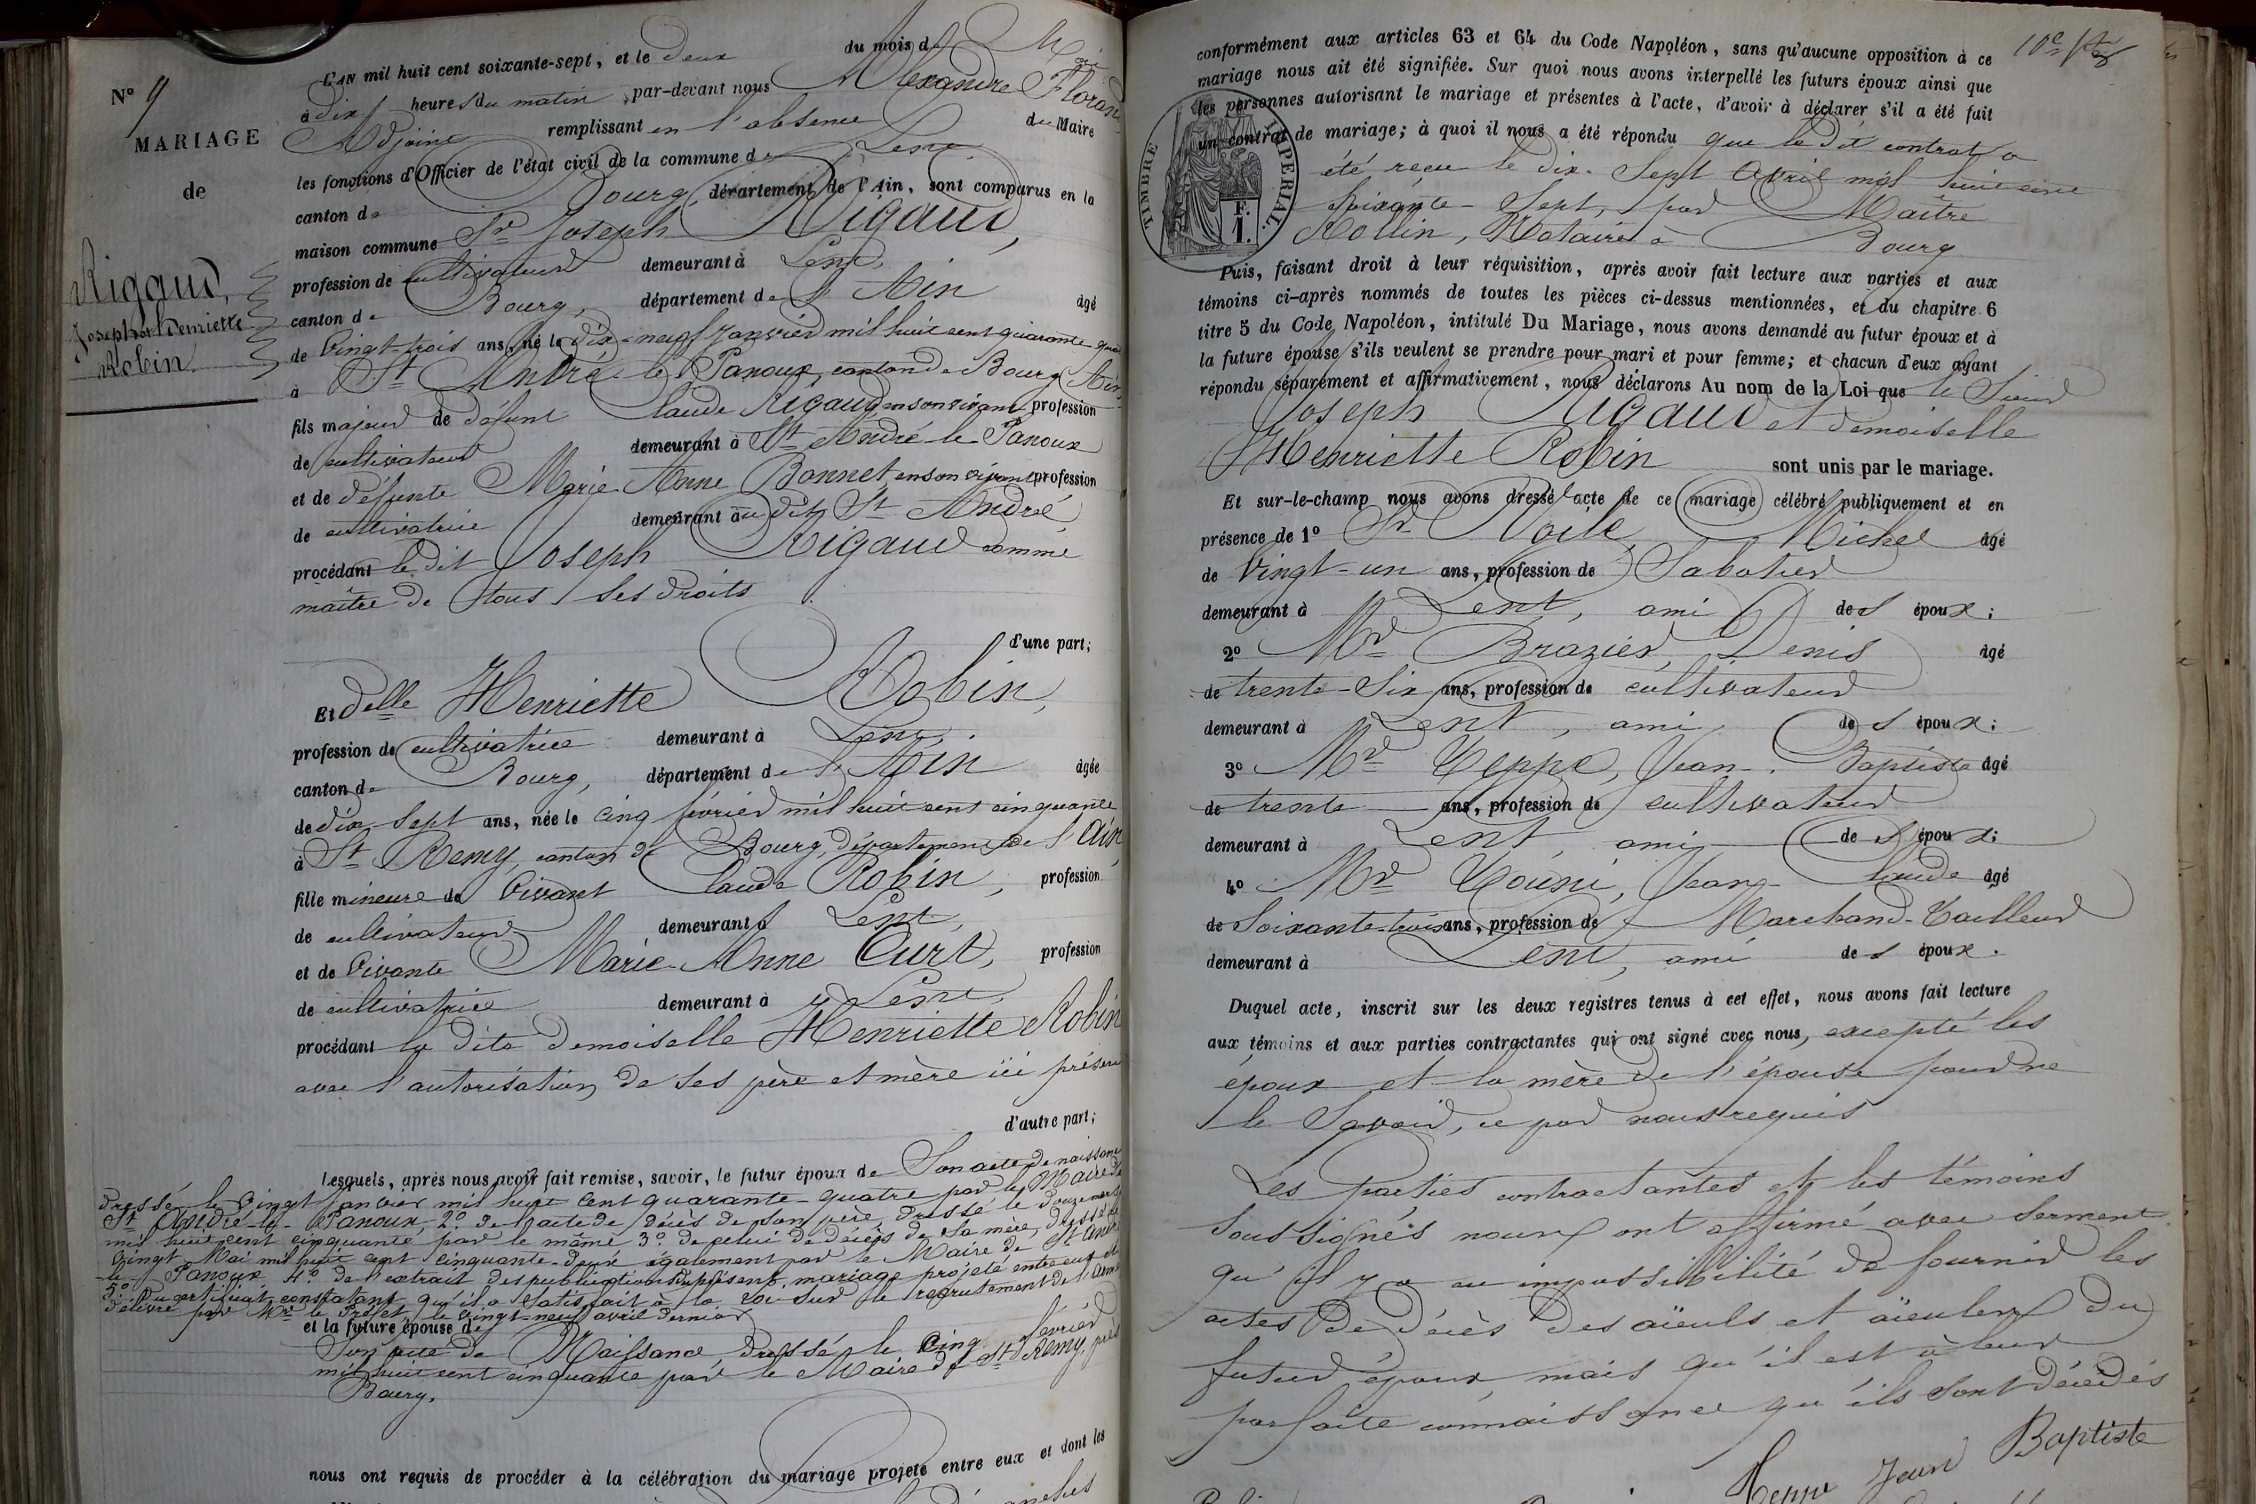 N° 9
MARIAGE
de
Rigaud,
Joseph et Henriette
Robin
L'AN mil huit cent soixante-sept, et le deux du mois de Mai
à dix heures du matin, par-devant nous Alexandre Florand,
Adjoint remplissant en l'absence du Maire
les fonctions d'Officier de l'état civil de la commune de Lent
canton de Bourg, département de l'Ain, sont comparus en la
maison commune Sr Joseph Rigaud,
profession de cultivateur demeurant à Lent,
canton de Bourg, département de l'Ain âgé
de Vingt-trois ans, né le dix-neuf Janvier mil huit cent quarante quatre
à St André-le-Panoux, canton de Bourg Ain,
fils majeur de défunt Claude Rigaud en son vivant profession
de cultivateur demeurant à St André-le-Panoux
et de défunte Marie-Anne Bonnet en son vivant profession
de cultivatrice demeurant au dit St André,
procédant le dit Joseph Rigaud comme
maître de tous ses droits
d'une part;
Et Delle Henriette Robin,
profession de cultivatrice demeurant à Lent,
canton de Bourg, département de l'Ain âgée
de dix-sept ans, née le cinq février mil huit cent cinquante
à St Remy, canton de Bourg, département de l'Ain
fille mineure de Vivant Claude Robin, profession
de cultivateur demeurant à Lent,
et de Vivante Marie-Anne Curt, profession
de cultivatrice demeurant à Lent,
procédant la dite Demoiselle Henriette Robin
avec l'autorisation de ses père et mère ici présents
d'autre part;
Lesquels, après nous avoir fait remise, savoir, le futur époux de Son acte de naissance
dressé le vingt Janvier mil huit cent quarante-quatre par le Maire de
St André-le-Panoux 2° de l'acte de décès de son père, dressé le douze mars
mil huit cent cinquante par le même 3° de celui de décès de sa mère, dressé le
vingt Mai mil huit cent cinquante-deux également par le Maire de St André
le Panoux 4° de l'extrait des publications du présent mariage projeté entre eux et
5° Du certificat constatant qu'il a satisfait à la loi sur le recrutement de l'armée
délivré par Mr le Préfet, le vingt-neuf avril dernier
et la future épouse de
Son acte de Naissance dressé le Cinq février
mil huit cent cinquante par le Maire de St Remy, près
Bourg.
nous ont requis de procéder à la célébration du mariage projeté entre eux et dont les
10e
conformément aux articles 63 et 64 du Code Napoléon, sans qu'aucune opposition à ce
mariage nous ait été signifiée. Sur quoi nous avons interpellé les futurs époux ainsi que
les personnes autorisant le mariage et présentes à l'acte, d'avoir à déclarer s'il a été fait
un contrat de mariage; à quoi il nous a été répondu que le dit contrat a
été reçu le dix-Sept Avril mil huit cent
Soixante-Sept, par Maître
Rollin, Notaire à Bourg
TIMBRE IMPERIAL.
F.
1.
Puis, faisant droit à leur réquisition, après avoir fait lecture aux parties et aux
témoins ci-après nommés de toutes les pièces ci-dessus mentionnées, et du chapitre 6
titre 5 du Code Napoléon, intitulé Du Mariage, nous avons demandé au futur époux et à
la future épouse s'ils veulent se prendre pour mari et pour femme; et chacun d'eux ayant
répondu séparément et affirmativement, nous déclarons Au nom de la Loi que le Sieur
Joseph Rigaud et demoiselle
Henriette Robin sont unis par le mariage.
Et sur-le-champ nous avons dressé acte de ce mariage célébré publiquement et en
présence de 1° Sr Michel âgé
de Vingt-un ans, profession de Sabotier
demeurant à Lent, ami des époux;
2° Mr Brazier, Denis âgé
de trente-six ans, profession de cultivateur
demeurant à Lent, ami des époux;
3° Mr Teppe, Jean-Baptiste âgé
de trente ans, profession de cultivateur
demeurant à Lent ami des époux;
4° Mr Jean-Claude âgé
de Soixante-trois ans, profession de Marchand-Tailleur
demeurant à Lent, ami des époux.
Duquel acte, inscrit sur les deux registres tenus à cet effet, nous avons fait lecture
aux témoins et aux parties contractantes qui ont signé avec nous, excepté les
époux et la mère de l'épouse pour ne
le Savoir, ce par nous requis
Les Parties contractantes et les témoins
Soussignés nous ont affirmé avec serment
qu'il y a eu impossibilité de fournir les
actes de décès des aïeuls et aïeules du
futur époux, mais qu'il est à leur
parfaite connaissance qu'ils sont décédés
Teppe Jean Baptiste